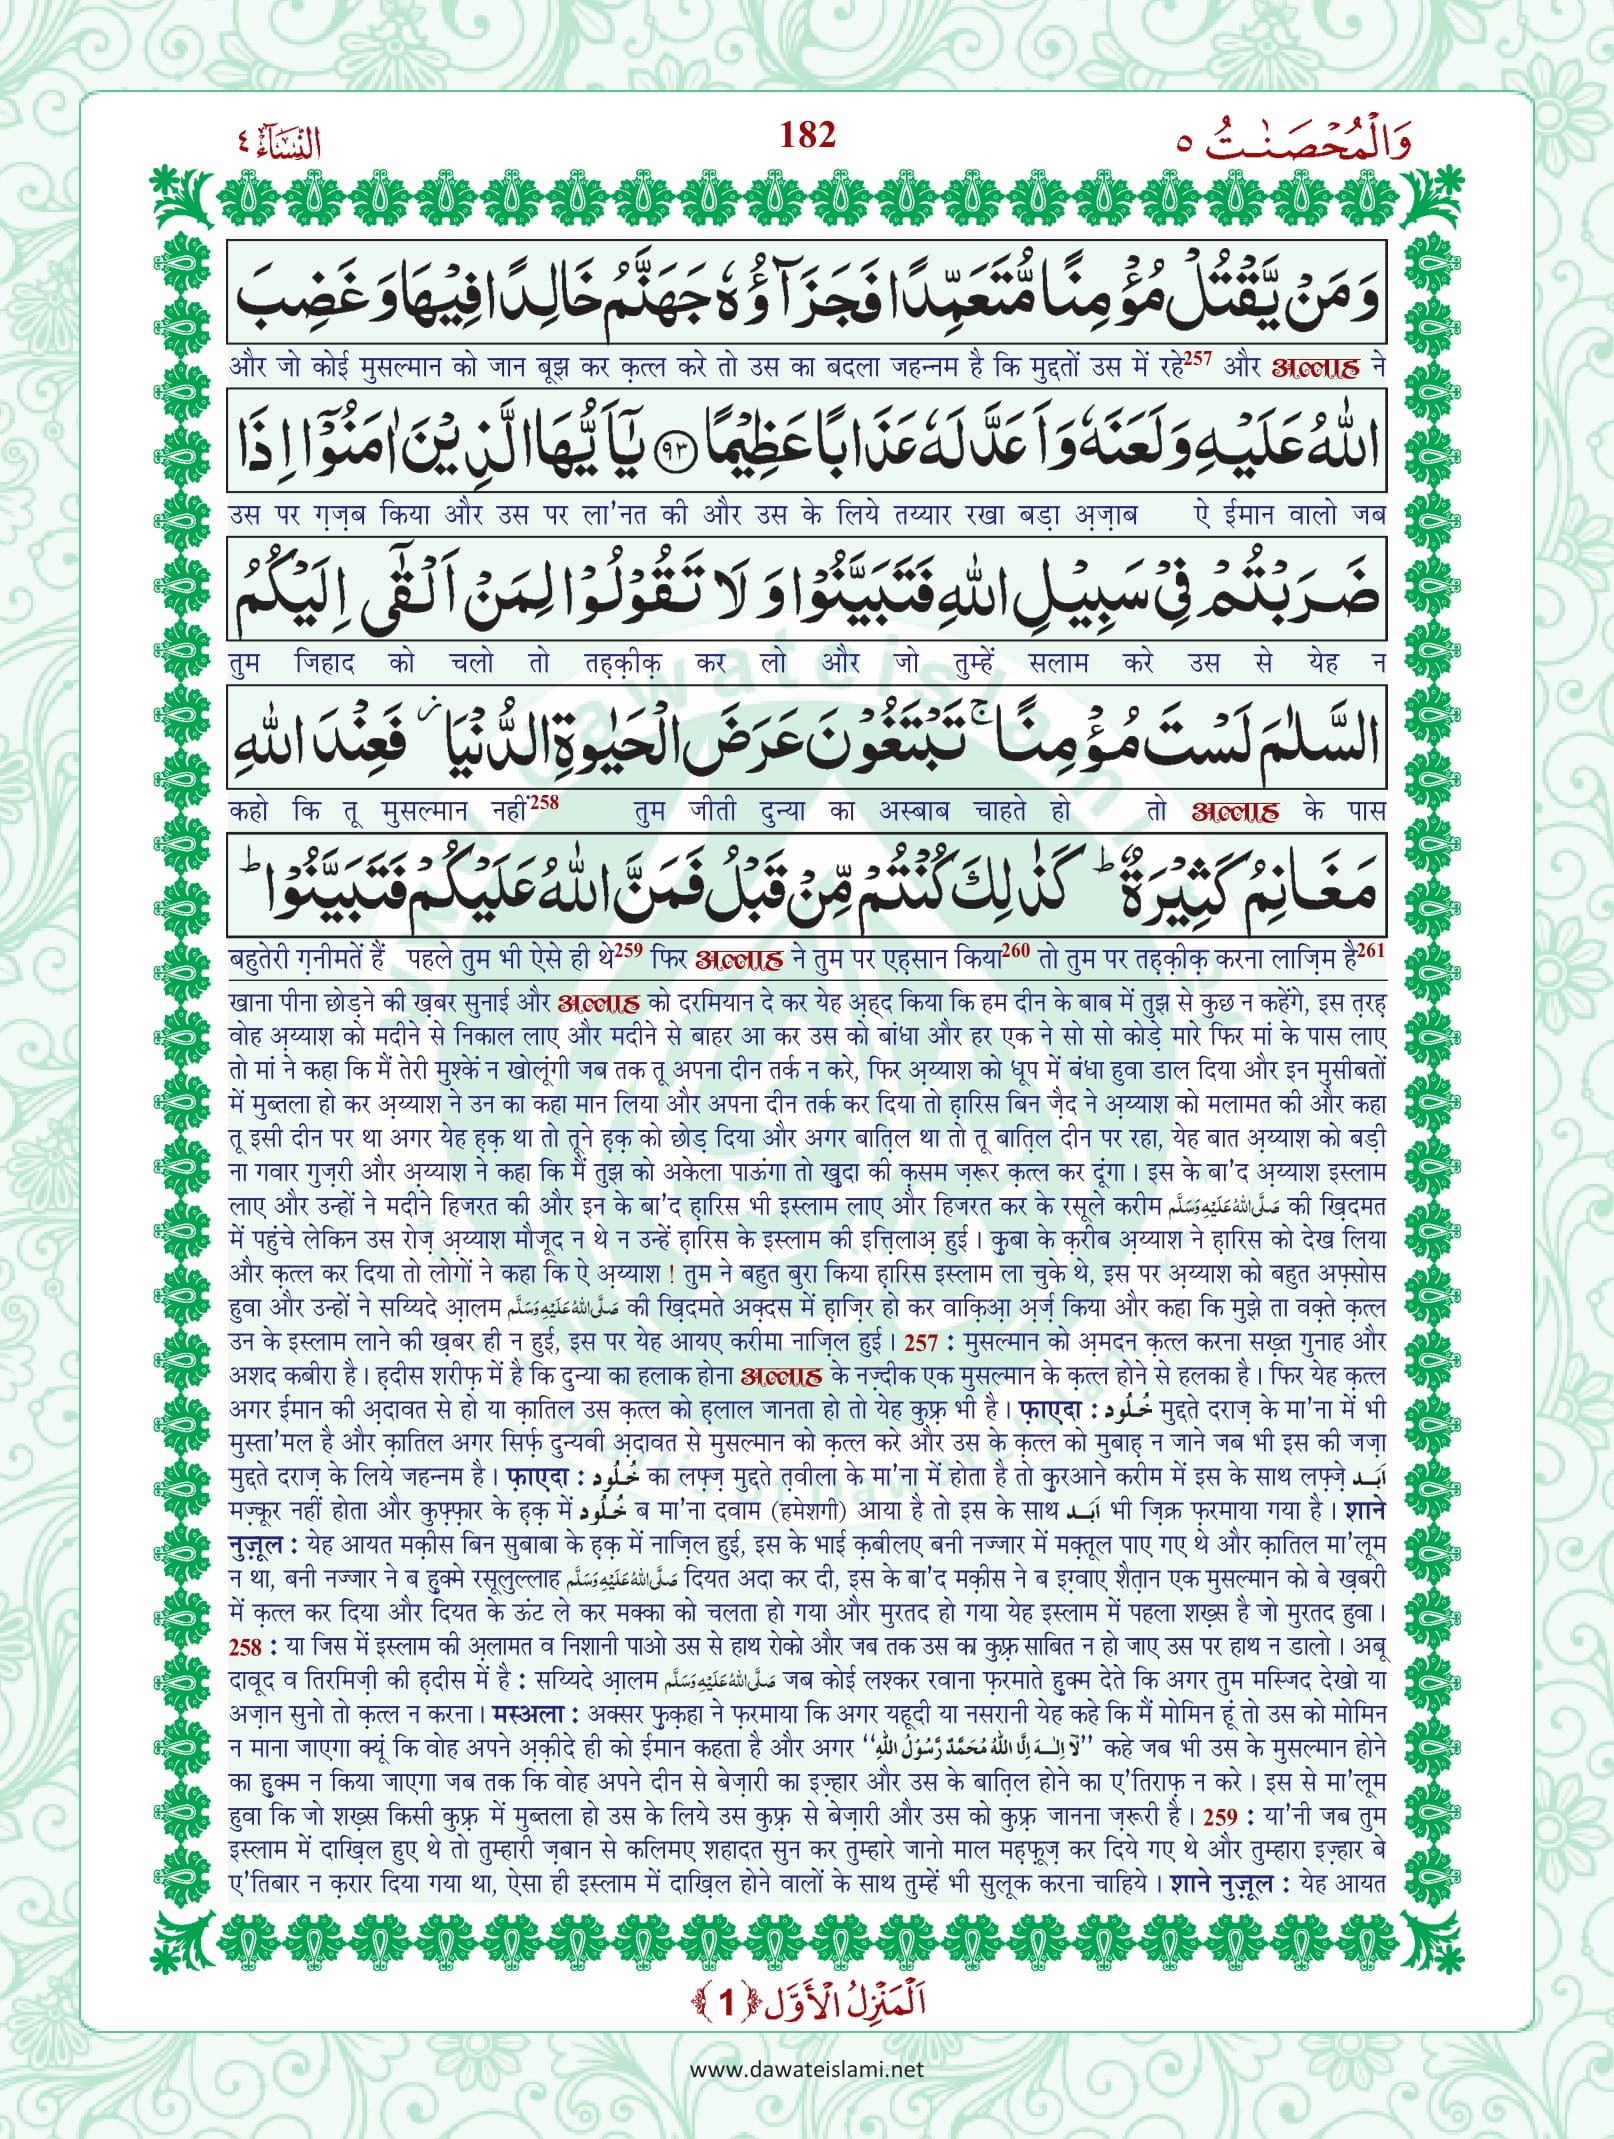 النِّسَآء ٤
182
وَالْمُحْصَنٰتُ ٥
وَمَنْ يَّقْتُلْ مُؤْمِنًا مُّتَعَمِّدًا فَجَزَآؤُهٗ جَهَنَّمُ خَالِدًا فِيْهَا وَغَضِبَ
और जो कोई मुसल्मान को जान बूझ कर क़त्ल करे तो उस का बदला जहन्नम है कि मुद्दतों उस में रहे257 और अल्लाह ने
اللّٰهُ عَلَيْهِ وَلَعَنَهٗ وَاَعَدَّ لَهٗ عَذَابًا عَظِيْمًا ﴿٩٣﴾ يٰۤاَيُّهَا الَّذِيْنَ اٰمَنُوْۤا اِذَا
उस पर ग़ज़ब किया और उस पर ला'नत की और उस के लिये तय्यार रखा बड़ा अ़ज़ाब ऐ ईमान वालो जब
ضَرَبْتُمْ فِيْ سَبِيْلِ اللّٰهِ فَتَبَيَّنُوْا وَلَا تَقُوْلُوْا لِمَنْ اَلْقٰۤى اِلَيْكُمُ
तुम जिहाद को चलो तो तह़क़ीक़ कर लो और जो तुम्हें सलाम करे उस से येह न
السَّلٰمَ لَسْتَ مُؤْمِنًا ۚ تَبْتَغُوْنَ عَرَضَ الْحَيٰوةِ الدُّنْيَا ؗ فَعِنْدَ اللّٰهِ
कहो कि तू मुसल्मान नहीं258 तुम जीती दुन्या का अस्बाब चाहते हो तो अल्लाह के पास
مَغَانِمُ كَثِيْرَةٌ ؕ كَذٰلِكَ كُنْتُمْ مِّنْ قَبْلُ فَمَنَّ اللّٰهُ عَلَيْكُمْ فَتَبَيَّنُوْا ؕ
बहुतेरी ग़नीमतें हैं पहले तुम भी ऐसे ही थे259 फिर अल्लाह ने तुम पर एह़सान किया260 तो तुम पर तह़क़ीक़ करना लाज़िम है261
खाना पीना छोड़ने की ख़बर सुनाई और अल्लाह को दरमियान दे कर येह अ़ह्द किया कि हम दीन के बाब में तुझ से कुछ न कहेंगे, इस त़रह़
वोह अ़य्याश को मदीने से निकाल लाए और मदीने से बाहर आ कर उस को बांधा और हर एक ने सो सो कोड़े मारे फिर मां के पास लाए
तो मां ने कहा कि मैं तेरी मुश्कें न खोलूंगी जब तक तू अपना दीन तर्क न करे, फिर अ़य्याश को धूप में बंधा हुवा डाल दिया और इन मुसीबतों
में मुब्तला हो कर अ़य्याश ने उन का कहा मान लिया और अपना दीन तर्क कर दिया तो ह़ारिस बिन ज़ैद ने अ़य्याश को मलामत की और कहा
तू इसी दीन पर था अगर येह ह़क़ था तो तूने ह़क़ को छोड़ दिया और अगर बात़िल था तो तू बात़िल दीन पर रहा, येह बात अ़य्याश को बड़ी
ना गवार गुज़री और अ़य्याश ने कहा कि मैं तुझ को अकेला पाऊंगा तो ख़ुदा की क़सम ज़रूर क़त्ल कर दूंगा । इस के बा'द अ़य्याश इस्लाम
लाए और उन्हों ने मदीने हिजरत की और इन के बा'द ह़ारिस भी इस्लाम लाए और हिजरत कर के रसूले करीम صَلَّى اللهُ عَلَيْهِ وَسَلَّم की ख़िदमत
में पहुंचे लेकिन उस रोज़ अ़य्याश मौजूद न थे न उन्हें ह़ारिस के इस्लाम की इत्तिलाअ़ हुई । क़ुबा के क़रीब अ़य्याश ने ह़ारिस को देख लिया
और क़त्ल कर दिया तो लोगों ने कहा कि ऐ अ़य्याश ! तुम ने बहुत बुरा किया ह़ारिस इस्लाम ला चुके थे, इस पर अ़य्याश को बहुत अफ़्सोस
हुवा और उन्हों ने सय्यिदे आ़लम صَلَّى اللهُ عَلَيْهِ وَسَلَّم की ख़िदमते अक़्दस में ह़ाज़िर हो कर वाक़िआ़ अ़र्ज़ किया और कहा कि मुझे ता वक़्ते क़त्ल
उन के इस्लाम लाने की ख़बर ही न हुई, इस पर येह आयए करीमा नाज़िल हुई । 257 : मुसल्मान को अ़मदन क़त्ल करना सख़्त गुनाह और
अशद कबीरा है । ह़दीस शरीफ़ में है कि दुन्या का हलाक होना अल्लाह के नज़्दीक एक मुसल्मान के क़त्ल होने से हलका है । फिर येह क़त्ल
अगर ईमान की अ़दावत से हो या क़ातिल उस क़त्ल को ह़लाल जानता हो तो येह कुफ़्र भी है । फ़ाएदा : خُلُود मुद्दते दराज़ के मा'ना में भी
मुस्ता'मल है और क़ातिल अगर सिर्फ़ दुन्यवी अ़दावत से मुसल्मान को क़त्ल करे और उस के क़त्ल को मुबाह़ न जाने जब भी इस की जज़ा
मुद्दते दराज़ के लिये जहन्नम है । फ़ाएदा : خُلُود का लफ़्ज़ मुद्दते त़वीला के मा'ना में होता है तो क़ुरआने करीम में इस के साथ लफ़्ज़े اَبَد
मज़्कूर नहीं होता और कुफ़्फ़ार के ह़क़ में خُلُود ब मा'ना दवाम (हमेशगी) आया है तो इस के साथ اَبَد भी ज़िक्र फ़रमाया गया है । शाने
नुज़ूल : येह आयत मक़ीस बिन सुबाबा के ह़क़ में नाज़िल हुई, इस के भाई क़बीलए बनी नज्जार में मक़्तूल पाए गए थे और क़ातिल मा'लूम
न था, बनी नज्जार ने ब हुक्मे रसूलुल्लाह صَلَّى اللهُ عَلَيْهِ وَسَلَّم दियत अदा कर दी, इस के बा'द मक़ीस ने ब इग़्वाए शैत़ान एक मुसल्मान को बे ख़बरी
में क़त्ल कर दिया और दियत के ऊंट ले कर मक्का को चलता हो गया और मुरतद हो गया येह इस्लाम में पहला शख़्स है जो मुरतद हुवा ।
258 : या जिस में इस्लाम की अ़लामत व निशानी पाओ उस से हाथ रोको और जब तक उस का कुफ़्र साबित न हो जाए उस पर हाथ न डालो । अबू
दावूद व तिरमिज़ी की ह़दीस में है : सय्यिदे आ़लम صَلَّى اللهُ عَلَيْهِ وَسَلَّم जब कोई लश्कर रवाना फ़रमाते हुक्म देते कि अगर तुम मस्जिद देखो या
अज़ान सुनो तो क़त्ल न करना । मस्अला : अक्सर फ़ुक़हा ने फ़रमाया कि अगर यहूदी या नसरानी येह कहे कि मैं मोमिन हूं तो उस को मोमिन
न माना जाएगा क्यूं कि वोह अपने अ़क़ीदे ही को ईमान कहता है और अगर ‘‘لَا اِلٰهَ اِلَّا اللهُ مُحَمَّدٌ رَّسُوْلُ اللهِ’’ कहे जब भी उस के मुसल्मान होने
का हुक्म न किया जाएगा जब तक कि वोह अपने दीन से बेज़ारी का इज़्हार और उस के बात़िल होने का ए'तिराफ़ न करे । इस से मा'लूम
हुवा कि जो शख़्स किसी कुफ़्र में मुब्तला हो उस के लिये उस कुफ़्र से बेज़ारी और उस को कुफ़्र जानना ज़रूरी है । 259 : या'नी जब तुम
इस्लाम में दाख़िल हुए थे तो तुम्हारी ज़बान से कलिमए शहादत सुन कर तुम्हारे जानो माल मह़फ़ूज़ कर दिये गए थे और तुम्हारा इज़्हार बे
ए'तिबार न क़रार दिया गया था, ऐसा ही इस्लाम में दाख़िल होने वालों के साथ तुम्हें भी सुलूक करना चाहिये । शाने नुज़ूल : येह आयत
اَلْمَنْزِلُ الْاَوَّل ﴿1﴾
www.dawateislami.net